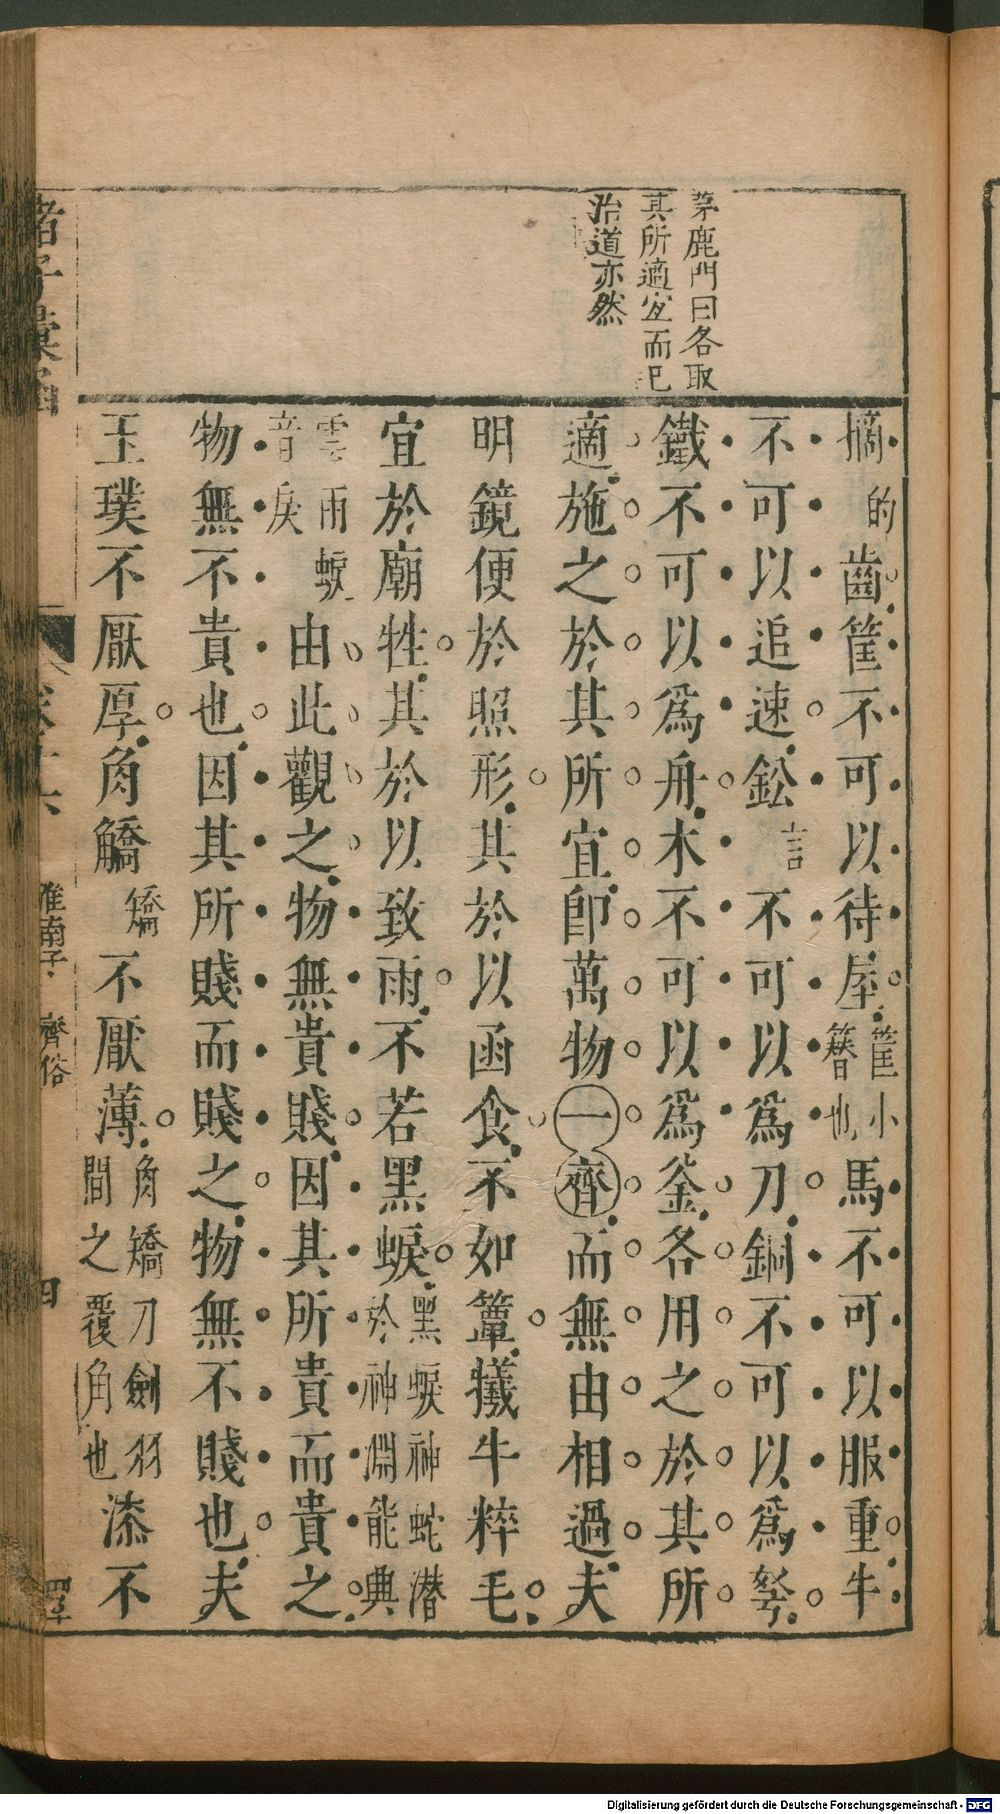 茅鹿門曰各取
其所適宜而已
治道亦然
擿的齒筐不可以待屋筐小簪也馬不可以服重牛
不可以追速鈆言不可以爲刀銅不可以爲弩
鐵不可以爲舟木不可以爲釜各用之於其所
適施之於其所宜卽萬物一齊而無由相過夫
明鏡便於照形其於以函食不如簞犧牛粹毛
宜於廟牲其於以致雨不若黑蜧黑蜧神蛇潛於神淵能興
雲雨蜧音戾由此觀之物無貴賤因其所貴而貴之
物無不貴也因其所賤而賤之物無不賤也夫
玉璞不厭厚角䚩矯不厭薄角矯刀劍羽間之覆角也漆不
諸子彙函
卷十六
淮南子 齊俗
四
Digitalisierung gefördert durch die Deutsche Forschungsgemeinschaft - DFG